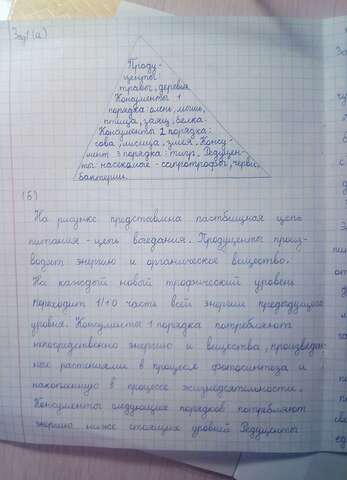 Зад1 (а)
Проду-
центы:
травы, деревья.
Консументы 1
порядка: олень, мышь,
птица, заяц, белка.
Консументы 2 порядка:
сова, лисица, змея. Консу-
мент 3 порядка: тигр. Редуцен-
ты: насекомые - сапротрофы, черви,
бактерии.
(б)
На рисунке представлена пастбищная цепь
питания - цепь выедания. Продуценты произ-
водят энергию и органическое вещество.
На каждый новой трофический уровень
переходит 1/10 часть всей энергии предыдущего
уровня. Консументы 1 порядка потребляют
непосредственно энергию и вещества, произведен-
ное растениями в процессе фотосинтеза и
накопленную в процессе жизнедеятельности.
Консументы следующих порядков потребляют
энергию ниже стоящих уровней Редуценты